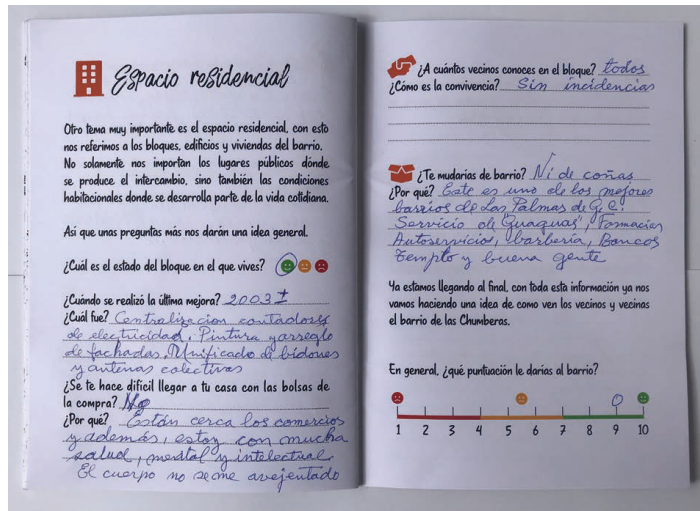 Espacio residencial
Otro tema muy importante es el espacio residencial, con esto
nos referimos a los bloques, edificios y viviendas del barrio.
No solamente nos importan los lugares públicos dónde
se produce el intercambio, sino también las condiciones
habitacionales donde se desarrolla parte de la vida cotidiana.
Así que unas preguntas más nos darán una idea general.
¿Cuál es el estado del bloque en el que vives?
¿Cuándo se realizó la última mejora? 2003 ±
¿Cuál fue? Centralizacion contadores
de electricidad. Pintura y arreglo
de fachadas. Unificado de bidones
y antenas colectivas
¿Se te hace difícil llegar a tu casa con las bolsas de
la compra? No
¿Por qué? Están cerca los comercios
y además, estoy con mucha
salud, mental y intelectual
El cuerpo no se me avejentado
¿A cuántos vecinos conoces en el bloque? todos
¿Cómo es la convivencia? Sin incidencias
¿Te mudarías de barrio? Ni de coñas
¿Por qué? Este es uno de los mejores
barrios de Las Palmas de G.C.
Servicio de "Guaguas", Farmacias
Autoservicio, barbería, Bancos
Templo y buena gente
Ya estamos llegando al final, con toda esta información ya nos
vamos haciendo una idea de como ven los vecinos y vecinas
el barrio de las Chumberas.
En general, ¿qué puntuación le darías al barrio?
1 2 3 4 5 6 7 8 9 10